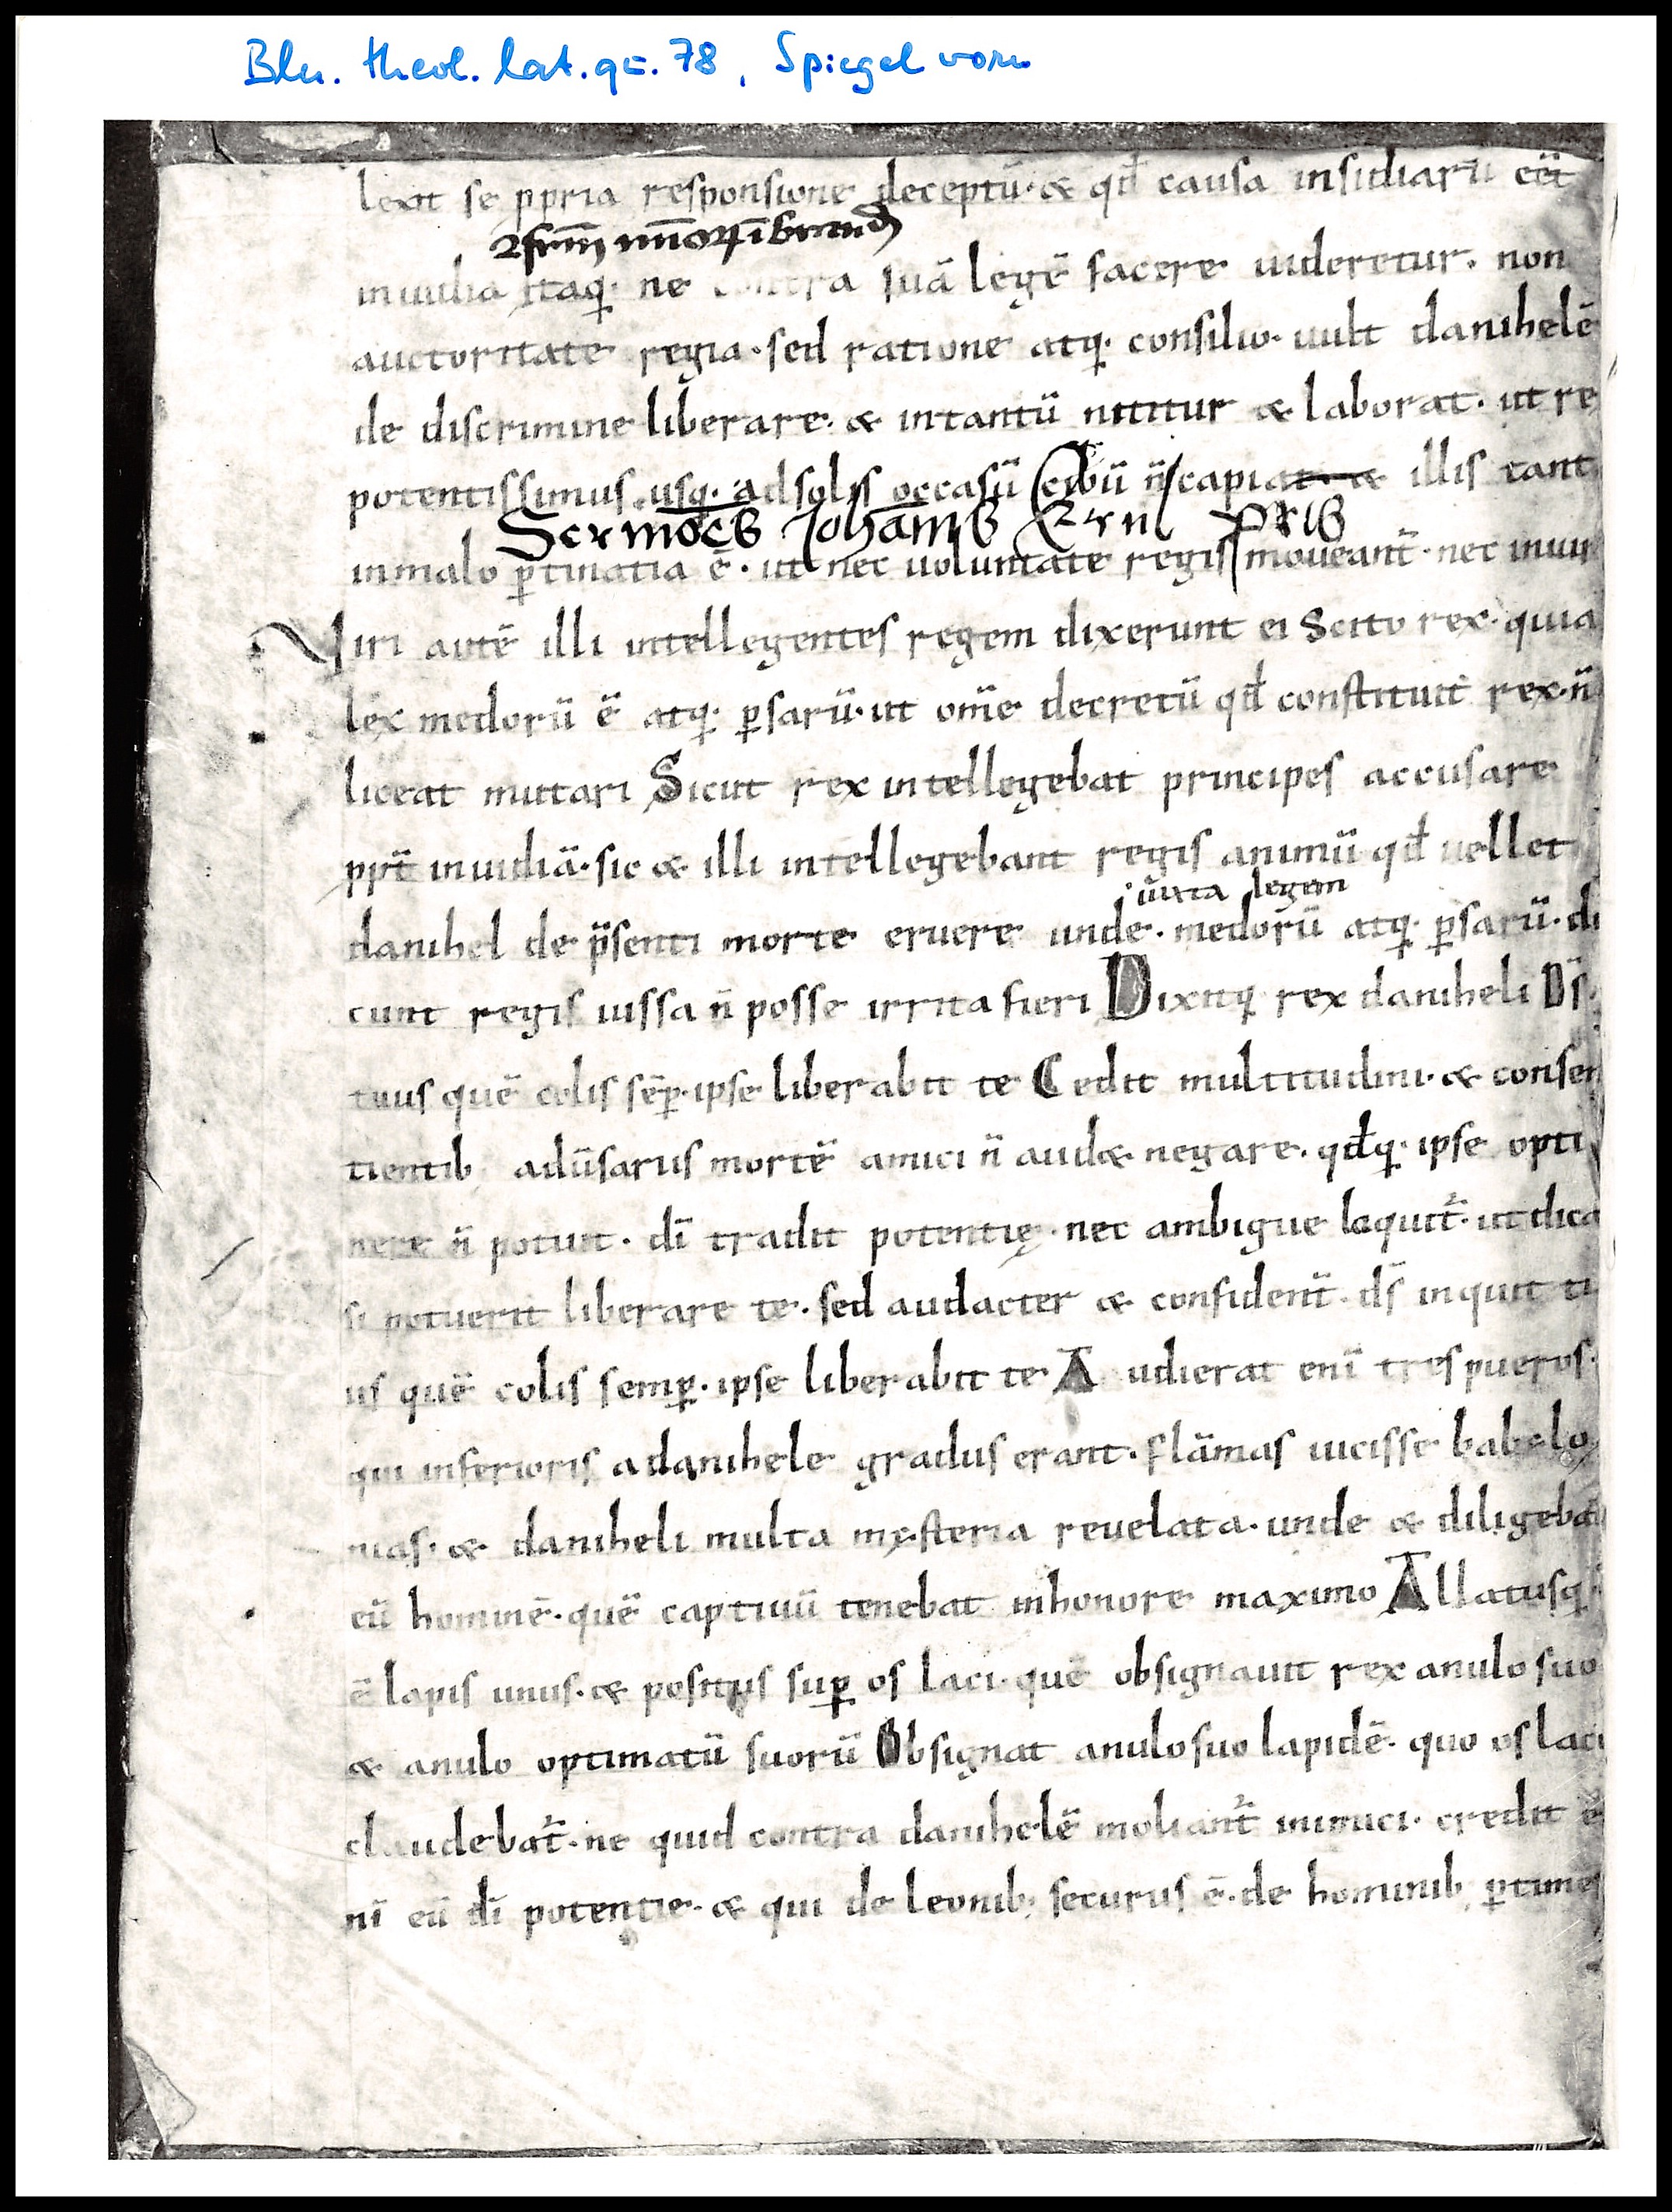 Bln. theol. lat. qu. 78, Spiegel vorn
lexit se ppria responsione deceptū· & qđ causa insidiarū eēt
frm̄ mīorꝝ ī brand
inuidia Itaq· ne contra suā legē facere uideretur· non
auctoritate regia· sed ratione atq· consilio· uult danihelē
de discrimine liberare· & intantū nititur & laborat· ut re
potentissimus usq· ad solis occasū cibū n̄ capiat & illis tant
Sermōes Johānis pris
in malo ꝑtinatia ē· ut nec uoluntate regis moueant̄· nec iniur
Viri autē illi intellegentes regem dixerunt ei Scito rex· quia
lex medorū ē atq· ꝑsarū· ut om̄e decretū qđ constituit rex· n̄
liceat mutari Sicut rex intellegebat principes accusare
ppt̄ inuidiā· sic & illi intellegebant regis animū qđ uellet
iuxta legem
danihel de p̄senti morte eruere unde· medorū atq· ꝑsarū· di
cunt regis iussa n̄ posse irrita fieri Dixitq rex daniheli Ds̄·
tuus quē colis semꝑ· ipse liberabit te Cedit multitudini· & consen
tientib; adūsariis mortē amici n̄ aud& negare· qđq· ipse opti
nere n̄ potuit· dī tradit potentię· nec ambigue loquit̄· ut dica
si potuerit liberare te· sed audacter & confident̄· ds̄ inquit tu
us quē colis semꝑ· ipse liberabit te Audierat enī tres pueros·
qui inferioris a danihele gradus erant· flāmas uicisse babylo
nias· & daniheli multa mysteria reuelata· unde & diligeba
eū hominē· quē captiuū tenebat in honore maximo Allatusq·
ē lapis unus· & positus suꝑ os laci· quē obsignauit rex anulo suo
& anulo optimatū suorū Obsignat anulo suo lapidē· quo os laci
claudebat̄· ne quid contra danihelē moliant̄ inimici· credit ē
nī eū dī potentie· & qui de leonib; securus ē· de hominib; ꝑtimes